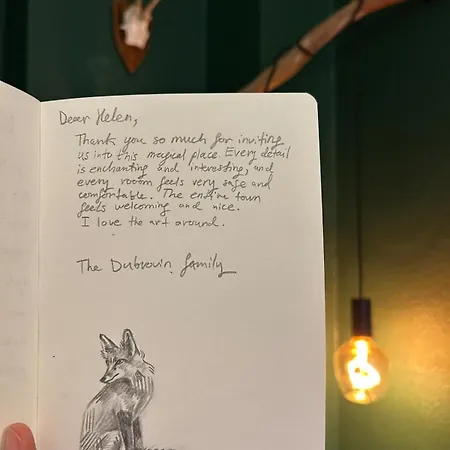 Dear Helen,
Thank you so much for inviting
us into this magical place. Every detail
is enchanting and interesting, and
every room feels very safe and
comfortable. The entire town
feels welcoming and nice.
I love the art around.
The Dubrovin family